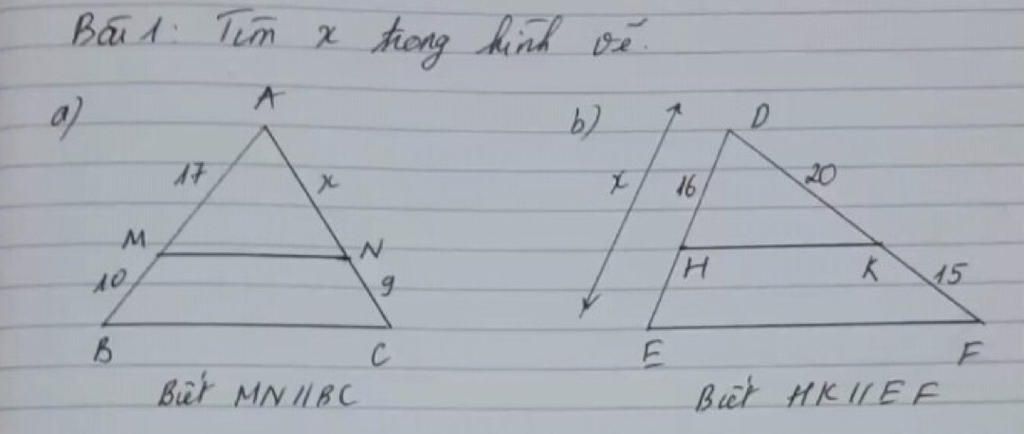 Bài 1: Tìm x trong hình vẽ.
a)
A
17
x
M
N
10
9
B
C
Biết MN//BC
b)
D
x
16
20
H
K
15
E
F
Biết HK//EF